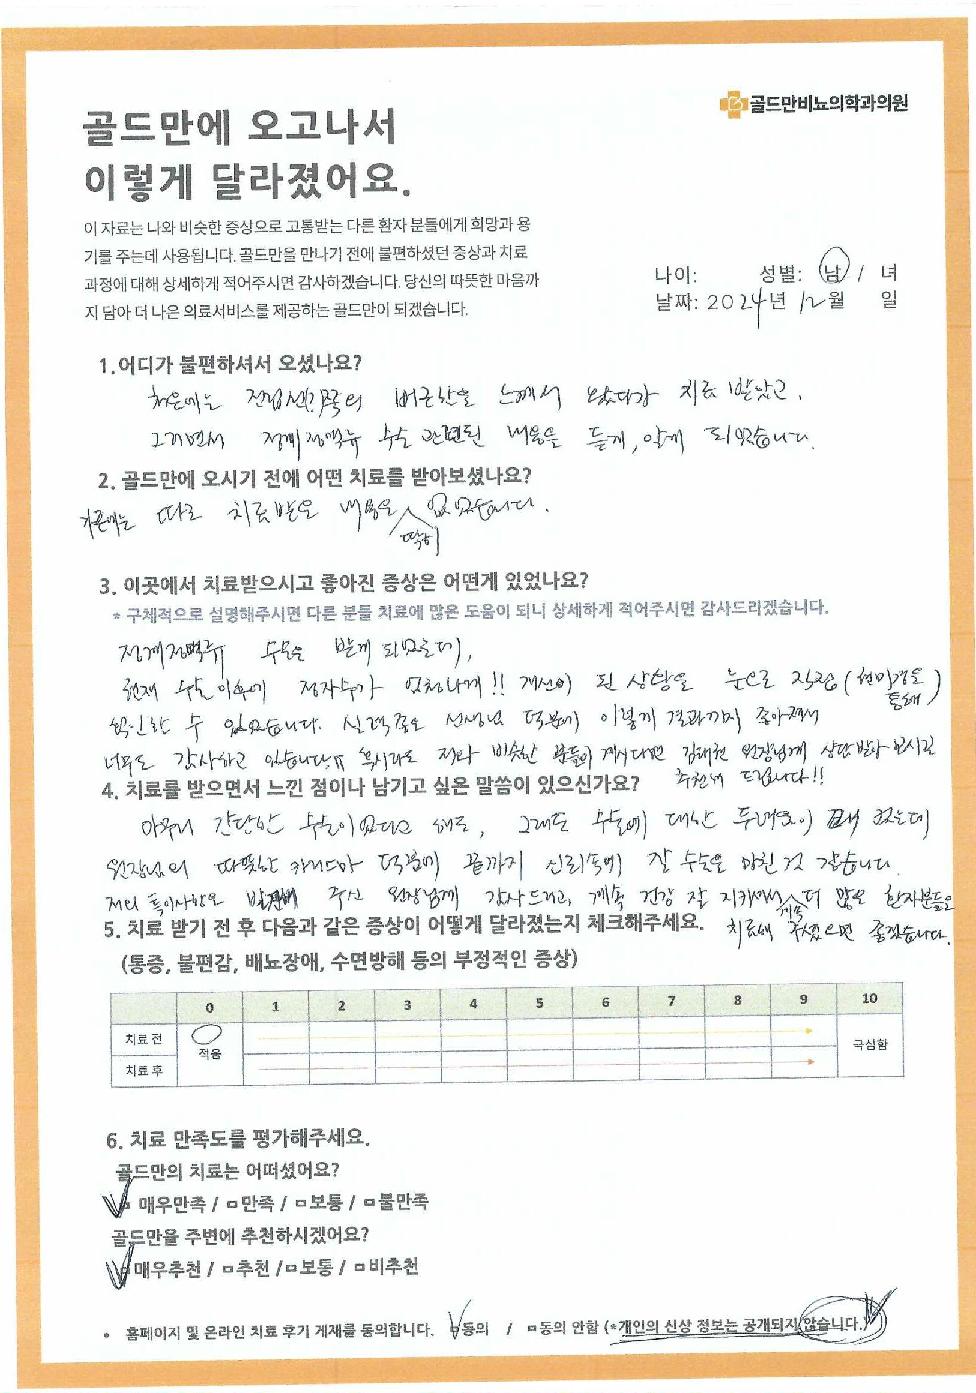 골드만비뇨의학과의원
골드만에 오고나서
이렇게 달라졌어요.
이 자료는 나와 비슷한 증상으로 고통받는 다른 환자 분들에게 희망과 용
기를 주는데 사용됩니다. 골드만을 만나기 전에 불편하셨던 증상과 치료
과정에 대해 상세하게 적어주시면 감사하겠습니다. 당신의 따뜻한 마음까
지 담아 더 나은 의료서비스를 제공하는 골드만이 되겠습니다.
나이: 성별: 남 / 녀
날짜: 2024년 12월 일
1.어디가 불편하셔서 오셨나요?
처음에는 전립선쪽의 버근함을 느껴서 왔다가 치료 받았고,
그러면서 정계정맥류 수술 관련된 내용을 듣게, 알게 되었습니다.
2. 골드만에 오시기 전에 어떤 치료를 받아보셨나요?
기존에는 따로 치료받은 내용은 딱히 없었습니다.
3. 이곳에서 치료받으시고 좋아진 증상은 어떤게 있었나요?
* 구체적으로 설명해주시면 다른 분들 치료에 많은 도움이 되니 상세하게 적어주시면 감사드리겠습니다.
정계정맥류 수술을 받게 되었는데,
현재 수술 이후에 정자수가 엄청나게!! 개선이 된 상황을 눈으로 직접 (현미경을 통해)
확인할 수 있었습니다. 실력좋으신 선생님 덕분에 이렇게 결과까지 좋아져서
너무도 감사하고 있습니다ㅠ 혹시라도 저와 비슷한 분들이 계시다면 김태헌 원장님께 상담 받아 보시길
추천해 드립니다!!
4. 치료를 받으면서 느낀 점이나 남기고 싶은 말씀이 있으신가요?
아무리 간단한 수술이었다고 해도, 그래도 수술에 대한 두려움이 컸는데
원장님의 따뜻한 카리스마 덕분에 끝까지 신뢰속에 잘 수술을 마친 것 같습니다.
저의 특이사항을 발견해 주신 원장님께 감사드리고, 계속 건강 잘 지키셔서 계속 더 많은 환자분들을
치료해 주셨으면 좋겠습니다.
5. 치료 받기 전 후 다음과 같은 증상이 어떻게 달라졌는지 체크해주세요.
(통증, 불편감, 배뇨장애, 수면방해 등의 부정적인 증상)
0 1 2 3 4 5 6 7 8 9 10
치료 전
적음
극심함
치료 후
6. 치료 만족도를 평가해주세요.
골드만의 치료는 어떠셨어요?
매우만족 / □만족 / □보통 / □불만족
골드만을 주변에 추천하시겠어요?
매우추천 / □추천 / □보통 / □비추천
• 홈페이지 및 온라인 치료 후기 게재를 동의합니다. □동의 / □동의 안함 (*개인의 신상 정보는 공개되지 않습니다.)